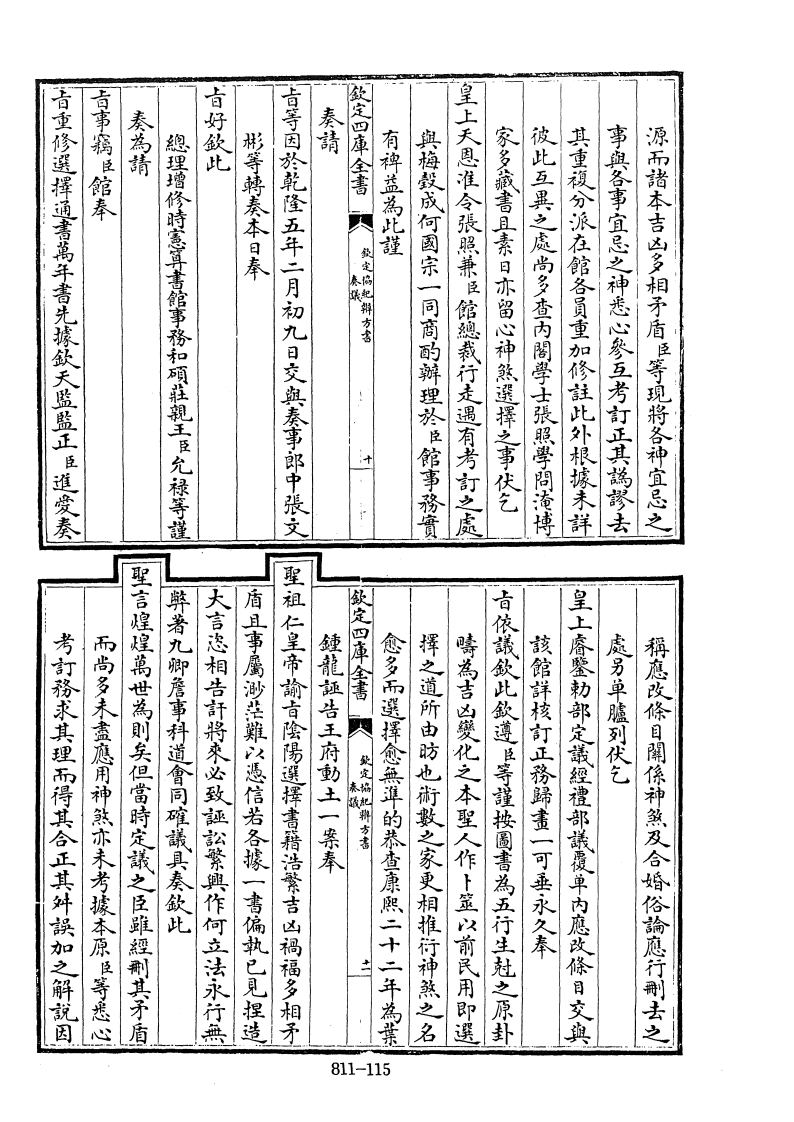 源而諸本吉凶多相矛盾臣等現將各神宜忌之
事與各事宜忌之神悉心參互考訂正其譌謬去
其重複分派在館各員重加修註此外根據未詳
彼此互異之處尚多查內閣學士張照學問淹博
家多藏書且素日亦留心神煞選擇之事伏乞
皇上天恩准令張照兼臣館總裁行走遇有考訂之處
與梅瑴成何國宗一同商酌辦理於臣館事務實
有裨益為此謹
欽定四庫全書
欽定協紀辨方書
奏議
十
奏請
㫖等因於乾隆五年二月初九日交與奏事郎中張文
彬等轉奏本日奉
㫖好欽此
總理增修時憲算書館事務和碩莊親王臣允祿等謹
奏為請
㫖事竊臣館奉
㫖重修選擇通書萬年書先據欽天監監正臣進愛奏
稱應改條目關係神煞及合婚俗論應行刪去之
處另單臚列伏乞
皇上睿鑒勅部定議經禮部議覆單內應改條目交與
該館詳核訂正務歸畫一可垂永久奉
㫖依議欽此欽遵臣等謹按圖書為五行生尅之原卦
疇為吉凶變化之本聖人作卜筮以前民用即選
擇之道所由昉也術數之家更相推衍神煞之名
愈多而選擇愈無準的恭查康熙二十二年為葉
欽定四庫全書
欽定協紀辨方書
奏議
十一
鍾龍誣告王府動土一案奉
聖祖仁皇帝諭㫖陰陽選擇書籍浩繁吉凶禍福多相矛
盾且事屬渺茫難以憑信若各據一書偏執已見捏造
大言恣相告訐將來必致誣訟繁興作何立法永行無
弊著九卿詹事科道會同確議具奏欽此
聖言煌煌萬世為則矣但當時定議之臣雖經刪其矛盾
而尚多未盡應用神煞亦未考據本原臣等悉心
考訂務求其理而得其合正其舛誤加之解說因
811-115